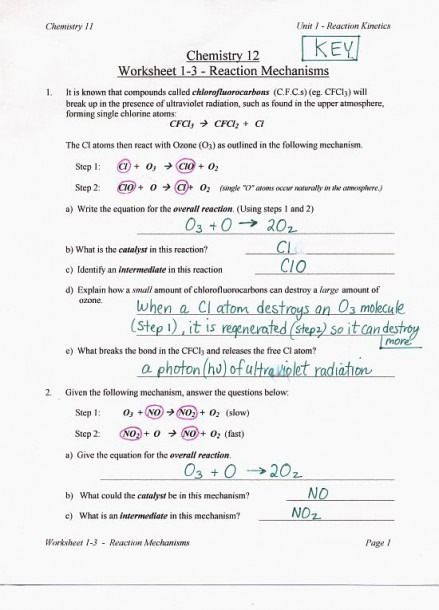 Chemistry 11 Unit 1 - Reaction Kinetics
KEY
Chemistry 12
Worksheet 1-3 - Reaction Mechanisms
1. It is known that compounds called chlorofluorocarbons (C.F.C.s) (eg. CFCl₃) will
break up in the presence of ultraviolet radiation, such as found in the upper atmosphere,
forming single chlorine atoms:
CFCl₃ → CFCl₂ + Cl
The Cl atoms then react with Ozone (O₃) as outlined in the following mechanism.
Step 1: Cl + O₃ → ClO + O₂
Step 2: ClO + O → Cl + O₂ (single "O" atoms occur naturally in the atmosphere.)
a) Write the equation for the overall reaction. (Using steps 1 and 2)
O₃ + O → 2O₂
b) What is the catalyst in this reaction? Cl
c) Identify an intermediate in this reaction ClO
d) Explain how a small amount of chlorofluorocarbons can destroy a large amount of
ozone.
When a Cl atom destroys an O₃ molecule
(Step 1), it is regenerated (step 2) so it can destroy
more
e) What breaks the bond in the CFCl₃ and releases the free Cl atom?
a photon (hν) of ultraviolet radiation
2. Given the following mechanism, answer the questions below:
Step 1: O₃ + NO → NO₂ + O₂ (slow)
Step 2: NO₂ + O → NO + O₂ (fast)
a) Give the equation for the overall reaction.
O₃ + O → 2O₂
b) What could the catalyst be in this mechanism? NO
c) What is an intermediate in this mechanism? NO₂
Worksheet 1-3 - Reaction Mechanisms Page 1